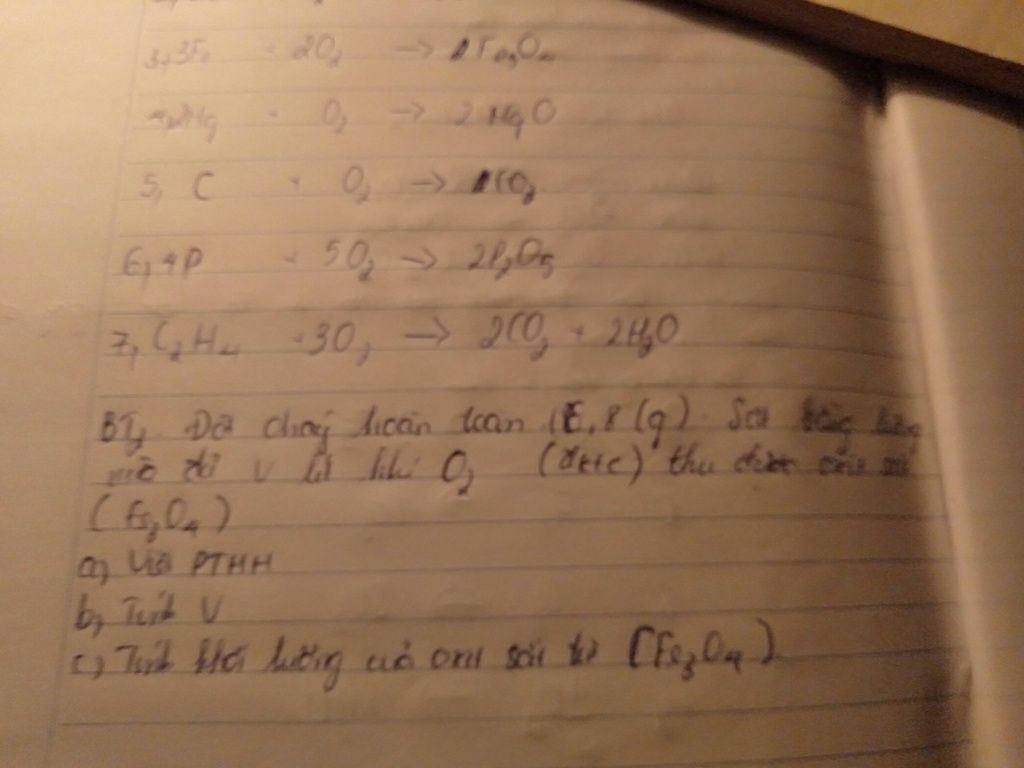 3, 3Fe + 2O2 → 1Fe3O4
4, 2Hg + O2 → 2HgO
5, C + O2 → 1CO2
6, 4P + 5O2 → 2P2O5
7, C2H4 + 3O2 → 2CO2 + 2H2O
BT2. Đốt cháy hoàn toàn 16,8 (g). Sắt
V lít khí O2 (đktc) thu được oxit sắt
(Fe3O4)
a, Viết PTHH
b, Tính V
c, Tính khối lượng của oxit sắt từ (Fe3O4)